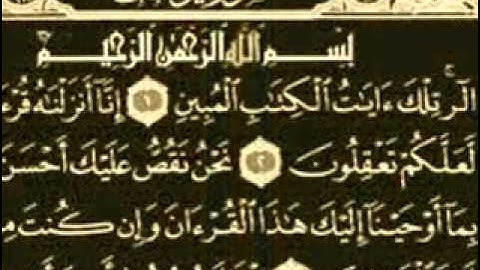 بِسْمِ اللَّهِ الرَّحْمَٰنِ الرَّحِيمِ
الٓر ۚ تِلْكَ ءَايَٰتُ الْكِتَٰبِ الْمُبِينِ ١ إِنَّآ أَنزَلْنَٰهُ
لَّعَلَّكُمْ تَعْقِلُونَ ٢ نَحْنُ نَقُصُّ عَلَيْكَ أَحْسَنَ
بِمَآ أَوْحَيْنَآ إِلَيْكَ هَٰذَا الْقُرْءَانَ وَإِن كُنتَ